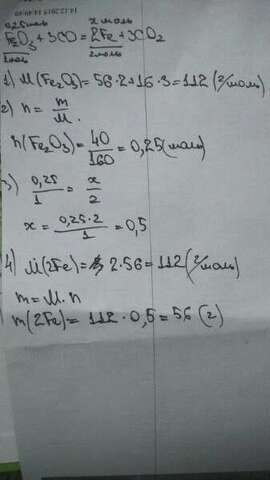 0,25моль х моль
Fe₂O₃+3CO=2Fe+3CO₂
1моль 2моль
1) M(Fe₂O₃)=56·2+16·3=112(г/моль)
2) n=m/M.
n(Fe₂O₃)=40/160=0,25(моль)
3) 0,25/1=x/2
x=0,25·2/1=0,5
4) M(2Fe)=2·56=112(г/моль)
m=M·n
m(2Fe)=112·0,5=56(г)